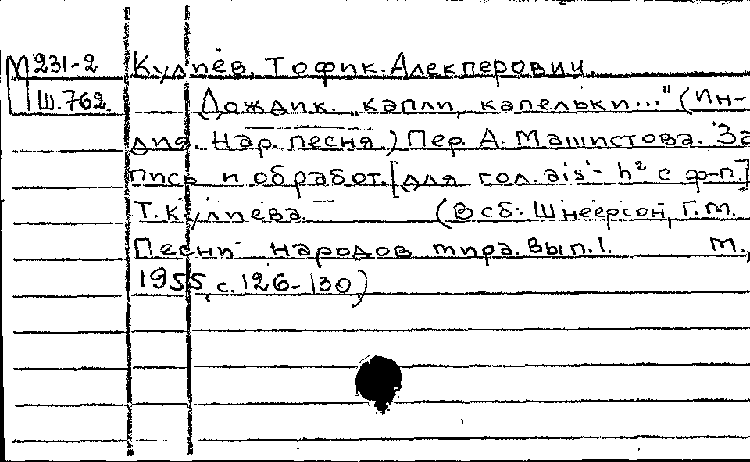 М 231-2 Кулиев, Тофик Алекперович.
Ш.762. Дождик. „Капли, капельки..." (Ин-
дия. Нар. песня.) Пер. А. Машистова. За
пись и обработ. [для гол. ais¹- h² с ф-п.]
Т. Кулиева (В сб: Шнеерсон, Г.М.
Песни народов мира. Вып. 1. М.,
1955, с. 126-130)